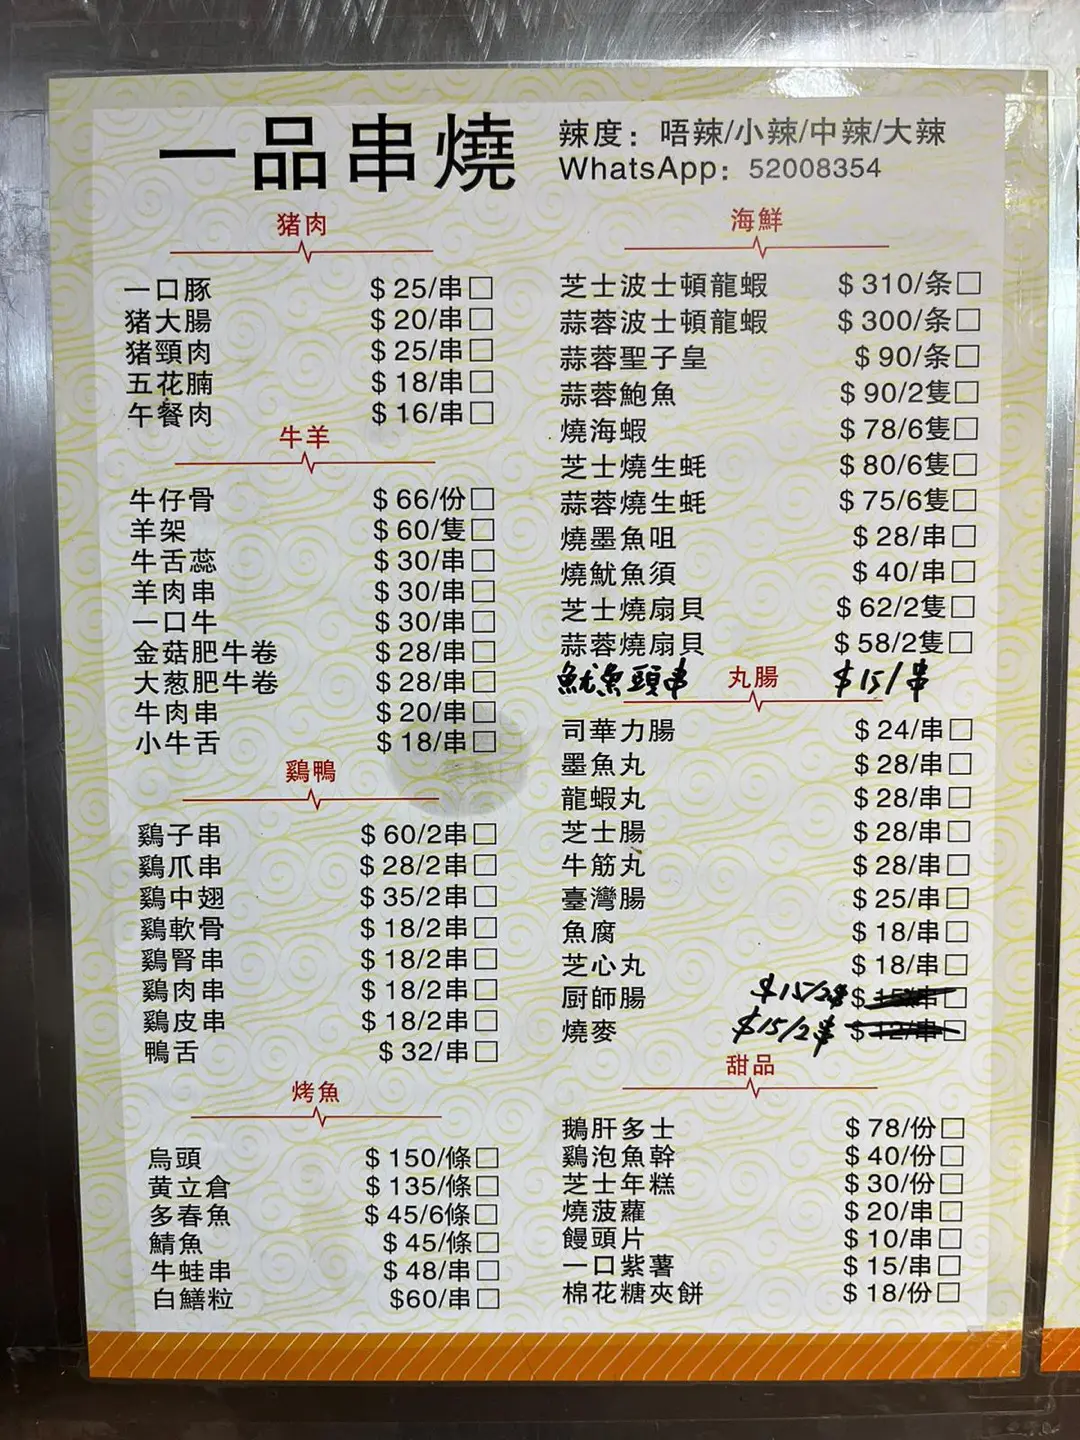 一品串燒
辣度：唔辣/小辣/中辣/大辣
WhatsApp：52008354
猪肉
一口豚 $25/串□
猪大腸 $20/串□
猪頸肉 $25/串□
五花腩 $18/串□
午餐肉 $16/串□
牛羊
牛仔骨 $66/份□
羊架 $60/隻□
牛舌蕊 $30/串□
羊肉串 $30/串□
一口牛 $30/串□
金菇肥牛卷 $28/串□
大葱肥牛卷 $28/串□
牛肉串 $20/串□
小牛舌 $18/串□
鷄鴨
鷄子串 $60/2串□
鷄爪串 $28/2串□
鷄中翅 $35/2串□
鷄軟骨 $18/2串□
鷄腎串 $18/2串□
鷄肉串 $18/2串□
鷄皮串 $18/2串□
鴨舌 $32/串□
烤魚
烏頭 $150/條□
黄立倉 $135/條□
多春魚 $45/6條□
鯖魚 $45/條□
牛蛙串 $48/串□
白鱔粒 $60/串□
海鮮
芝士波士頓龍蝦 $310/条□
蒜蓉波士頓龍蝦 $300/条□
蒜蓉聖子皇 $90/条□
蒜蓉鮑魚 $90/2隻□
燒海蝦 $78/6隻□
芝士燒生蚝 $80/6隻□
蒜蓉燒生蚝 $75/6隻□
燒墨魚咀 $28/串□
燒魷魚須 $40/串□
芝士燒扇貝 $62/2隻□
蒜蓉燒扇貝 $58/2隻□
魷魚頭串 $15/串
丸腸
司華力腸 $24/串□
墨魚丸 $28/串□
龍蝦丸 $28/串□
芝士腸 $28/串□
牛筋丸 $28/串□
臺灣腸 $25/串□
魚腐 $18/串□
芝心丸 $18/串□
厨師腸 $15/2串 $15/串□
燒麥 $15/2串 $12/串□
甜品
鵝肝多士 $78/份□
鷄泡魚幹 $40/份□
芝士年糕 $30/份□
燒菠蘿 $20/串□
饅頭片 $10/串□
一口紫薯 $15/串□
棉花糖夾餅 $18/份□